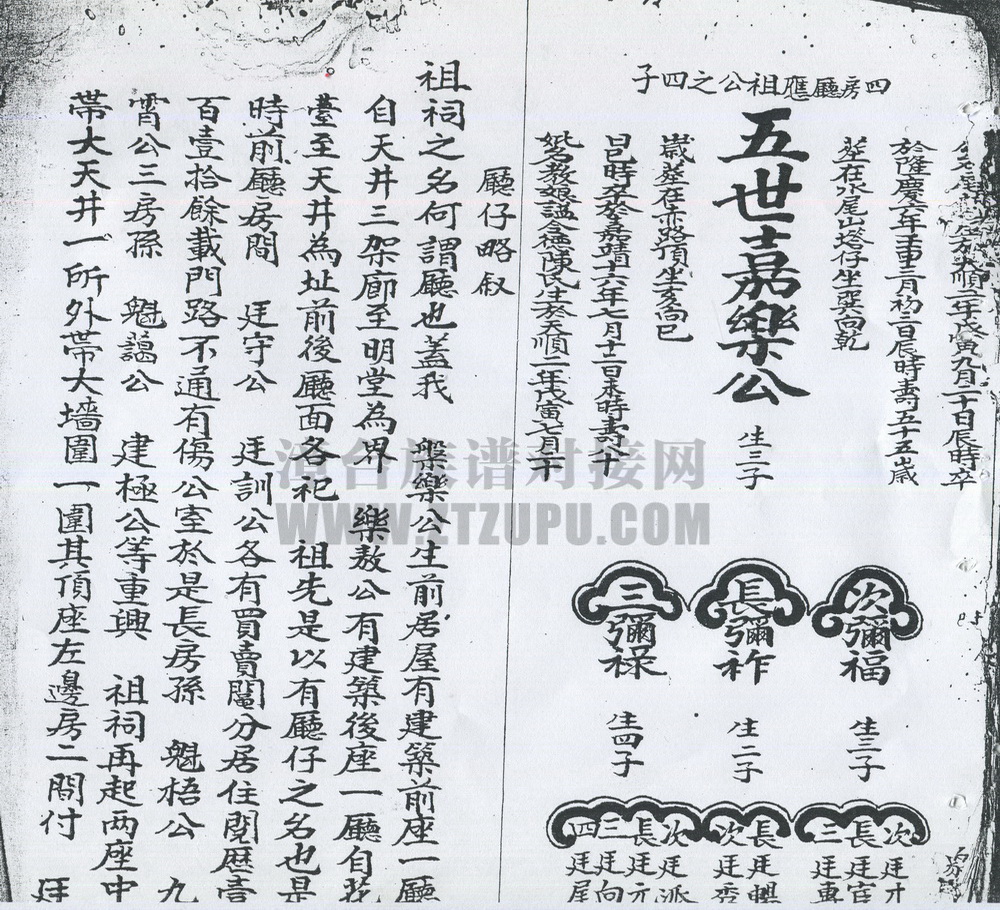 四房廳應祖公之四子
於大順二年戊寅九月二十日辰時卒
於隆慶六年重三月初二日辰時壽五十五歲
葬在水尾山塔仔坐巽向乾
五世嘉樂公 生三子
歲葬在亦路頂坐亥向巳
巳時卒於嘉靖十六年七月十二日未時壽八十
妣名教娘謚德陳氏生於天順二年戊寅七月二十
次彌福 生三子
長彌祚 生二子
三彌禄 生四子
次廷才
長廷宦
三廷惠
長廷興
次廷秀
次廷派
長廷元
三廷向
四廷尾
廳仔略叙
祖祠之名何謂廳也蓋我 槃樂公生前居屋有建築前座一廳
自天井三架廊至明堂為界 樂敖公有建築後座一廳自花
臺至天井為址前後廳面各祀 祖先是以有廳仔之名也是
時前廳房間 廷守公 廷訓公各有買賣鬮分居住閱曆壹
百壹拾餘載門路不通有傷公室於是長房孫 魁梧公 九
霄公三房孫 魁謁公 建極公等重興 祖祠再起两座中
帶大天井一所外帶大墻圍一圍其頂座左邊房二間付 廷
滬台族谱对接网
WWW.ZTZUPU.COM